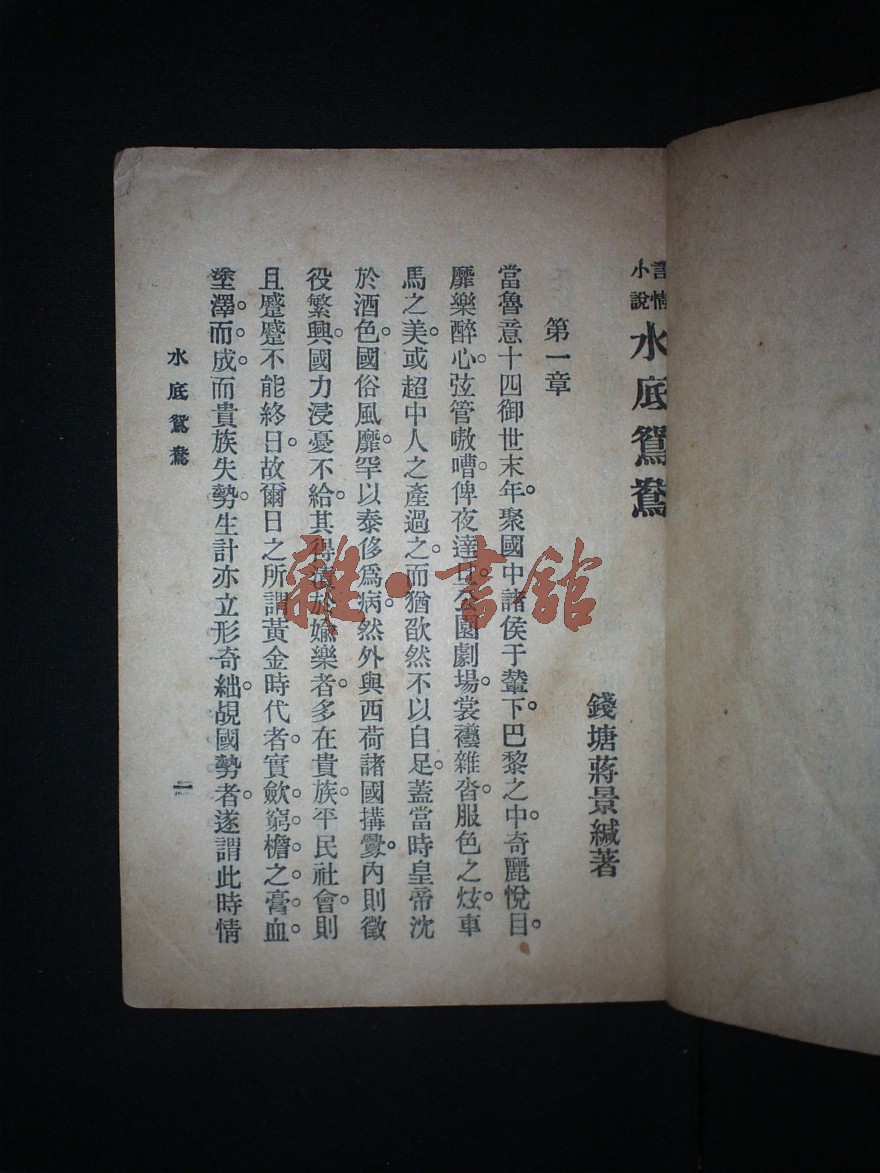 言情小說 水底鴛鴦
錢塘蔣景緘著
第一章
當魯意十四御世末年。聚國中諸侯于輦下。巴黎之中。奇麗悅目。
靡樂醉心。弦管嗷嘈。俾夜達日。公園劇場。裳襼雜沓。服色之炫。車
馬之美。或超中人之產過之。而猶欿然不以自足。蓋當時皇帝沈
於酒色。國俗風靡。罕以泰侈爲病。然外與西荷諸國搆釁。內則徵
役繁興。國力浸憂不給。其得 於婾樂者。多在貴族。平民社會。則
且蹙蹙不能終日。故爾日之所謂黃金時代者。實歛窮檐之膏血
塗澤而成。而貴族失勢。生計亦立形奇絀。覘國勢者。遂謂此時情
水底鴛鴦
一
雜·書館